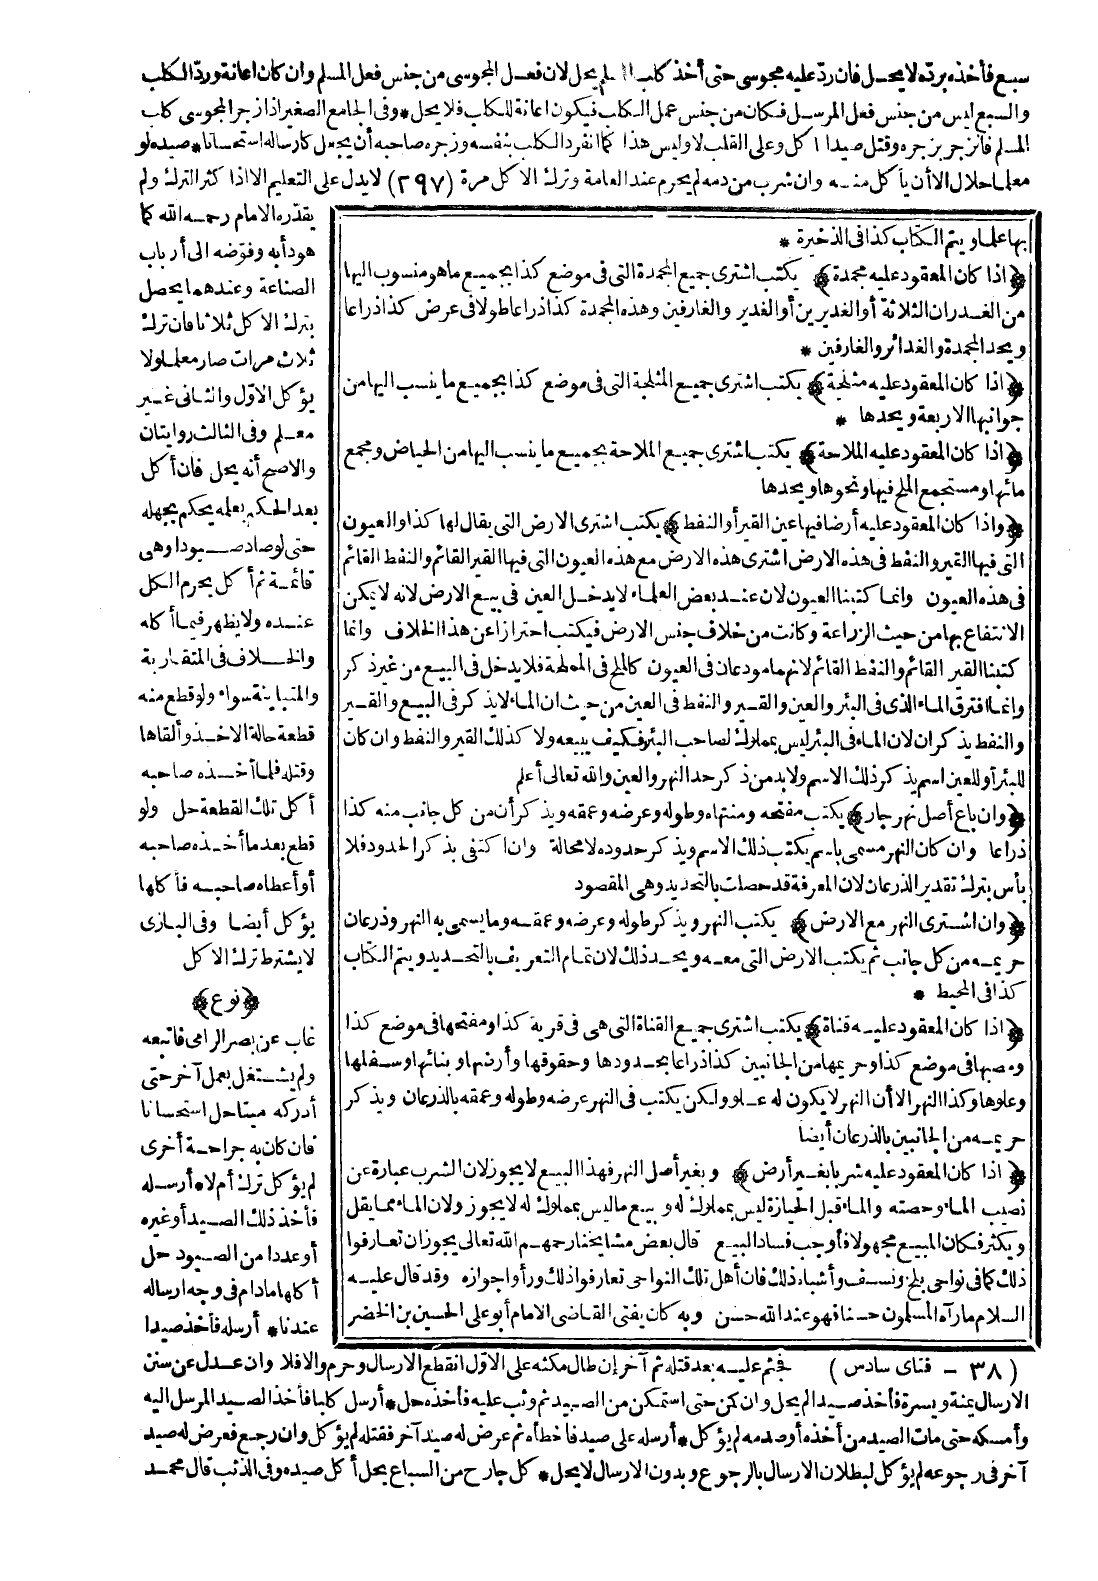 سبع فأخذه برده لا يحل فان رد عليه مجوسى حتى أخذ كلب المسلم يحل لان فعل المجوسى من جنس فعل المسلم وان كان اعانة ورد الكلب
والسبع ليس من جنس فعل المرسل فكان من جنس عمل الكلب فيكون اعانة للكلب فلا يحل * وفى الجامع الصغير اذا زجر المجوسى كلب
المسلم فانزجر بزجره وقتل صيدا أكل وعلى القلب لا وليس هذا كما انفرد الكلب بنفسه وزجره صاحبه أن يجعل كارساله استحسانا * صيده لو
معلما حلال الا أن يأكل منه وان شرب من دمه لم يحرم عند العامة وترك الاكل مرة (٢٩٧) لا يدل على التعليم الا اذا كثر الترك ولم
يقدره الامام رحمه الله كما
هو دأبه وفوضه الى أرباب
الصناعة وعندهما يحصل
بترك الاكل ثلاثا فان ترك
ثلاث مرات صار معلما ولا
يؤكل الاول والثانى غير
معلم وفى الثالث روايتان
والاصح أنه يحل فان أكل
بعد الحكم بعلمه يحكم بجهله
حتى لو صاد صيودا وهى
قائمة ثم أكل يحرم الكل
عنده ولا يظهر فيما أكله
والخلاف فى المتقاربة
والمتباينة سواء ولو قطع منه
قطعة حالة الاخذ وألقاها
وقتله فلما أخذه صاحبه
أكل تلك القطعة حل ولو
قطع بعد ما أخذه صاحبه
أو أعطاه صاحبه فأكلها
يؤكل أيضا وفى البازى
لا يشترط ترك الاكل
﴿نوع﴾
غاب عن بصر الرامى فاتبعه
ولم يشتغل بعمل آخر حتى
أدركه ميتا حل استحسانا
فان كان به جراحة أخرى
لم يؤكل ترك أم لا * أرسله
فأخذ ذلك الصيد أو غيره
أو عددا من الصيود حل
أكلها مادام فى وجه ارساله
عندنا * أرسله فأخذ صيدا
بها علما ويتم الكتاب كذا فى الذخيرة *
﴿اذا كان المعقود عليه مجمدة﴾ يكتب اشترى جميع المجمدة التى فى موضع كذا بجميع ما هو منسوب اليها
من الغدران الثلاثة أو الغديرين أو الغدير والغارفين وهذه المجمدة كذا ذراعا طولا فى عرض كذا ذراعا
ويحد المجمدة والغدائر والغارفين *
﴿اذا كان المعقود عليه مثلجة﴾ يكتب اشترى جميع المثلجة التى فى موضع كذا بجميع ما ينسب اليها من
جوانبها الاربعة ويحدها *
﴿اذا كان المعقود عليه الملاحة﴾ يكتب اشترى جميع الملاحة بجميع ما ينسب اليها من الحياض ومجمع
مائها ومستجمع الملح فيها ونحوها ويحدها
﴿واذا كان المعقود عليه أرضا فيها عين القير أو النفط﴾ يكتب اشترى الارض التى يقال لها كذا والعيون
التى فيها القير والنفط فى هذه الارض اشترى هذه الارض مع هذه العيون التى فيها القير القائم والنفط القائم
فى هذه العيون وانما كتبنا العيون لان عند بعض العلماء لا يدخل العين فى بيع الارض لانه لا يمكن
الانتفاع بها من حيث الزراعة وكانت من خلاف جنس الارض فيكتب احترازا عن هذا الخلاف وانما
كتبنا القير القائم والنفط القائم لانهما مودعان فى العيون كالملح فى المملحة فلا يدخل فى البيع من غير ذكر
وانما افترق الماء الذى فى البئر والعين والقير والنفط فى العين من حيث ان الماء لا يذكر فى البيع والقير
والنفط يذكران لان الماء فى البئر ليس بمملوك لصاحب البئر فكيف يبيعه ولا كذلك القير والنفط وان كان
للبئر أو للعين اسم يذكر ذلك الاسم ولا بد من ذكر حد النهر والعين والله تعالى أعلم
﴿وان باع أصل نهر جار﴾ يكتب مفتحه ومنتهاه وطوله وعرضه وعمقه ويذكر أن من كل جانب منه كذا
ذراعا وان كان النهر مسمى باسم يكتب ذلك الاسم ويذكر حدوده لا محالة وان اكتفى بذكر الحدود فلا
بأس بترك تقدير الذرعان لان المعرفة قد حصلت بالتحديد وهى المقصود
﴿وان اشترى النهر مع الارض﴾ يكتب النهر ويذكر طوله وعرضه وعمقه وما يسمى به النهر وذرعان
حريمه من كل جانب ثم يكتب الارض التى معه ويحد ذلك لان تمام التعريف بالتحديد ويتم الكتاب
كذا فى المحيط *
﴿اذا كان المعقود عليه قناة﴾ يكتب اشترى جميع القناة التى هى فى قرية كذا ومفتحها فى موضع كذا
ومصبها فى موضع كذا وحريمها من الجانبين كذا ذراعا بحدودها وحقوقها وأرضها وبنائها وسفلها
وعلوها وكذا النهر الا أن النهر لا يكون له علو ولكن يكتب فى النهر عرضه وطوله وعمقه بالذرعان ويذكر
حريمه من الجانبين بالذرعان أيضا
﴿اذا كان المعقود عليه شربا بغير أرض﴾ وبغير أصل النهر فهذا البيع لا يجوز لان الشرب عبارة عن
نصيب الماء وحصته والماء قبل الحيازة ليس بمملوك له وبيع ما ليس بمملوك له لا يجوز ولان الماء مما يقل
ويكثر فكان المبيع مجهولا فأوجب فساد البيع قال بعض مشايخنا رحمهم الله تعالى يجوز ان تعارفوا
ذلك كما فى نواحى بلخ ونسف وأشباه ذلك فان أهل تلك النواحى تعارفوا ذلك ورأوا جوازه وقد قال عليه
السلام ما رآه المسلمون حسنا فهو عند الله حسن وبه كان يفتى القاضى الامام أبو على الحسين بن الخضر
(٣٨ - فتاى سادس) فجثم عليه بعد قتله ثم آخر إن طال مكثه على الاول انقطع الارسال وحرم والا فلا وان عدل عن سنن
الارسال يمنة ويسرة فأخذ صيدا لم يحل وان كمن حتى استمكن من الصيد ثم وثب عليه فأخذه حل * أرسل كلبا فأخذ الصيد المرسل اليه
وأمسكه حتى مات الصيد من أخذه أو صدمه لم يؤكل * أرسله على صيد فأخطأه ثم عرض له صيد آخر فقتله لم يؤكل وان رجع فعرض له صيد
آخر فى رجوعه لم يؤكل لبطلان الارسال بالرجوع وبدون الارسال لا يحل * كل جارح من السباع يحل أكل صيده وفى الذئب قال محمد